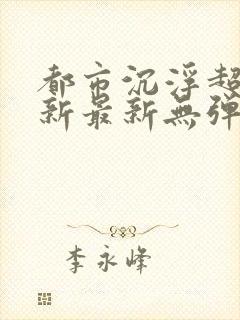 都市沉浮超
新最新無彈
李永峰